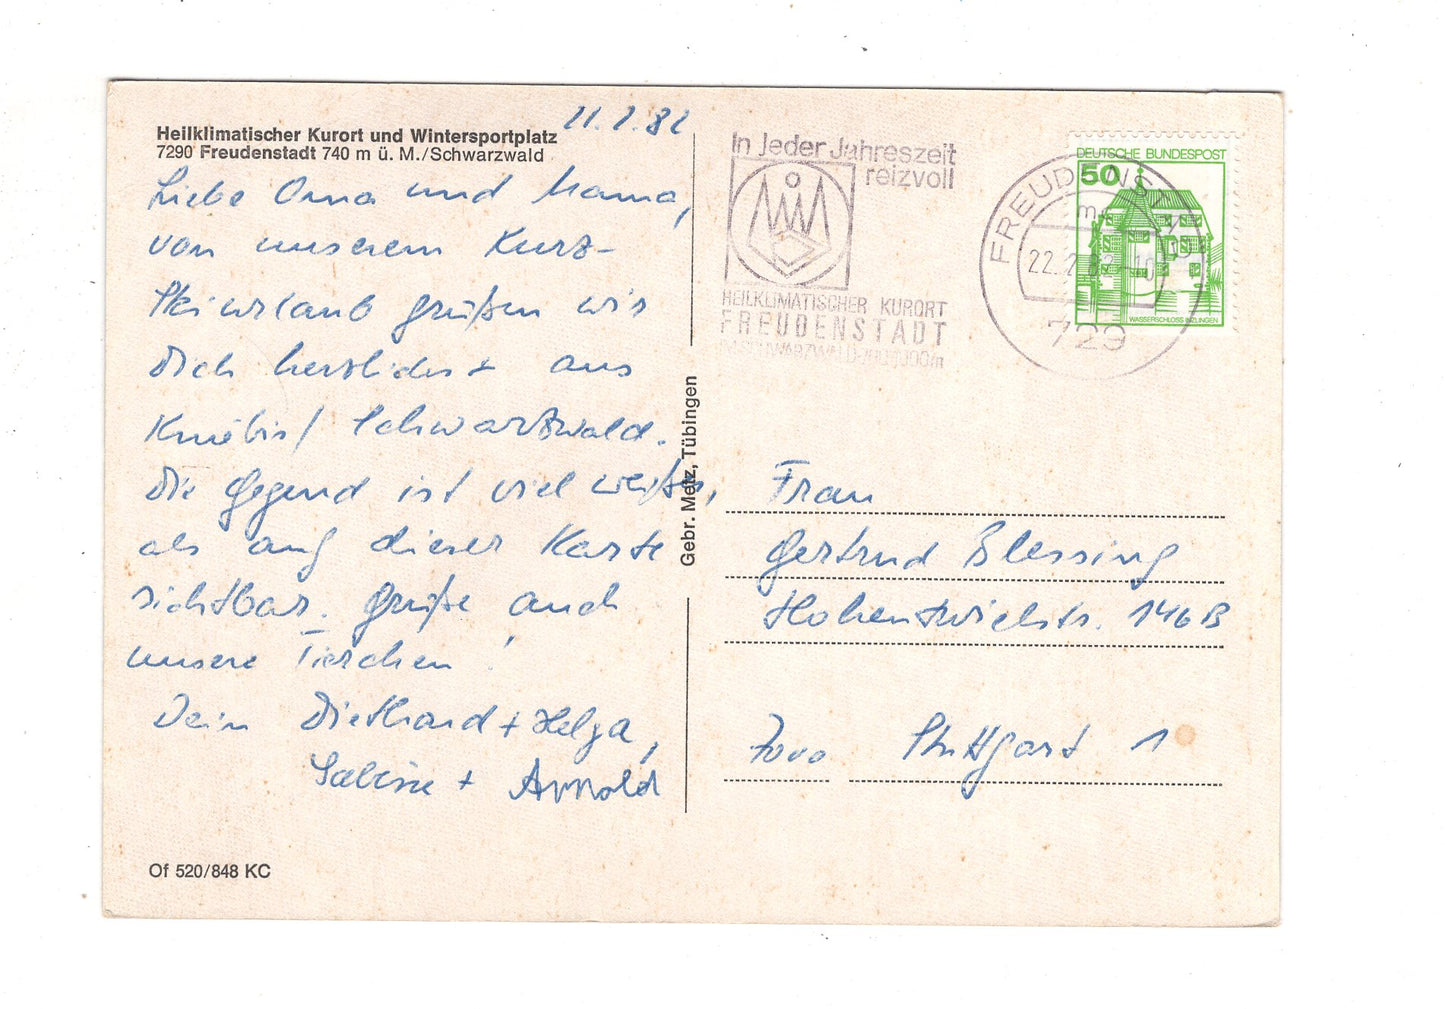 Heilklimatischer Kurort und Wintersportplatz
7290 Freudenstadt 740 m ü. M./Schwarzwald
Liebe Oma und Mama,
von unserem Kurz-
Skiurlaub grüßen wir
Dich herzlichst aus
Kniebis/Schwarzwald.
Die Gegend ist viel weißer,
als auf dieser Karte
sichtbar. Grüße auch
unsere Tierchen!
Dein Diethard + Helga,
Sabine + Arnold
Of 520/848 KC
Gebr. Metz, Tübingen
In Jeder Jahreszeit
reizvoll
HEILKLIMATISCHER KURORT
FREUDENSTADT
FREUDENSTADT
22.2.82-10
729
DEUTSCHE BUNDESPOST
50
WASSERSCHLOSS INZLINGEN
Frau
Gertrud Blessing
Hohentwielstr. 146B
7000 Stuttgart 1